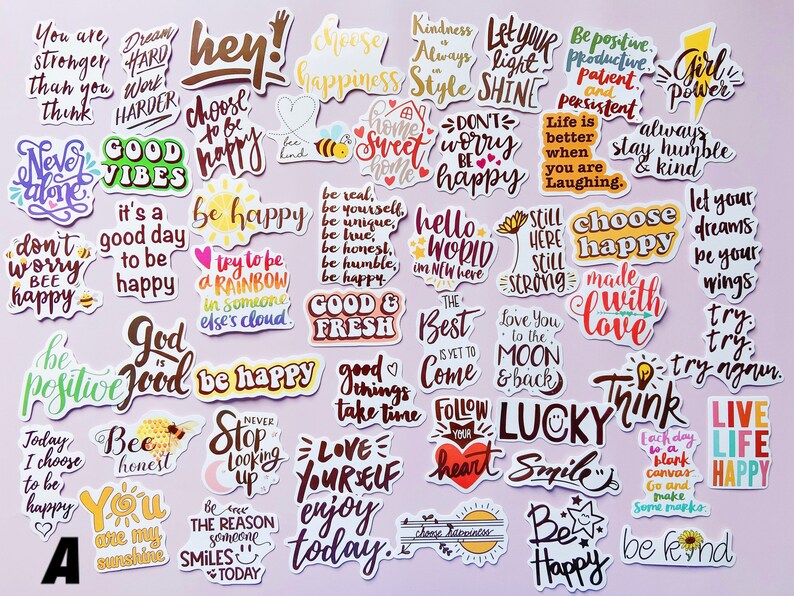 You are
stronger
than you
think
Dream
HARD
Work
HARDER
hey!
choose
happiness
Kindness
is
Always
in
Style
Let your
light
SHINE
Be positive,
productive,
patient
and
persistent.
Girl
Power
Never
alone
GOOD
VIBES
Choose
to be
happy
bee
kind
home
Sweet
home
DON'T
WORRY
BE
happy
Life is
better
when
you are
Laughing.
always
stay humble
& kind
don't
worry
BEE
happy
it's a
good day
to be
happy
be happy
try to be
a RAINBOW
in someone
else's cloud.
be real,
be yourself,
be unique,
be true,
be honest,
be humble,
be happy.
hello
WORLD
im NEW here
STILL
HERE
STILL
STRONG
choose
happy
let your
dreams
be your
wings
GOOD &
FRESH
made
with
love
be
positive
God
is
Good
be happy
good
things
take time
THE
Best
IS YET TO
Come
Love You
to the
MOON
& back
try,
try,
try again.
Think
Today
I choose
to be
happy
Bee
honest
NEVER
Stop
Looking
up
LOVE
YOURSELF
enjoy
today.
FOLLOW
YOUR
heart
LUCKY
Smile
Each day
is a
blank
canvas.
Go and
make
Some marks.
LIVE
LIFE
HAPPY
You
are my
sunshine
Be
THE REASON
someone
SMiLES
TODAY
choose happiness
Be
Happy
be kind
A